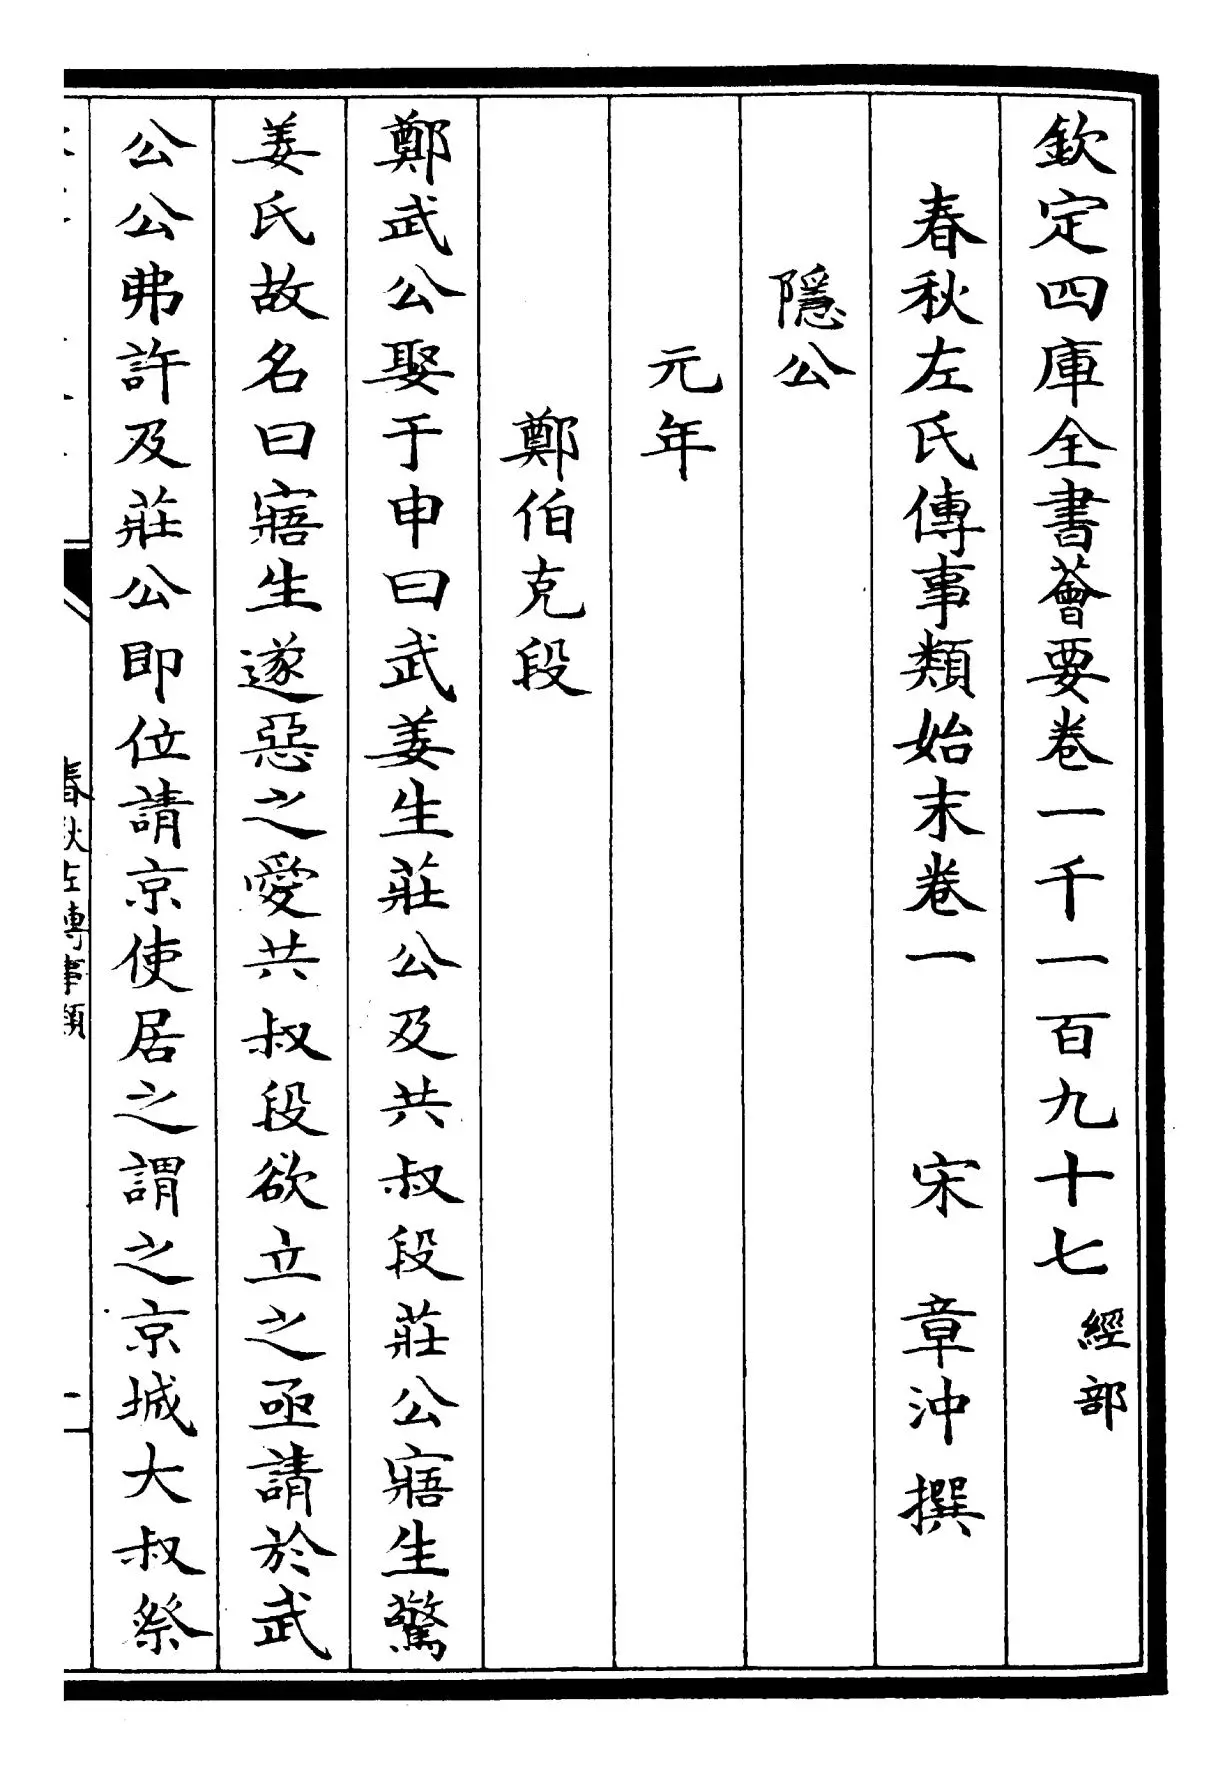 欽定四庫全書薈要卷一千一百九十七 經部
春秋左氏傳事類始末卷一 宋 章沖 撰
隱公
元年
鄭伯克段
鄭武公娶于申曰武姜生莊公及共叔段莊公寤生驚
姜氏故名曰寤生遂惡之愛共叔段欲立之亟請於武
公公弗許及莊公即位請京使居之謂之京城大叔祭
春秋左傳事類
一